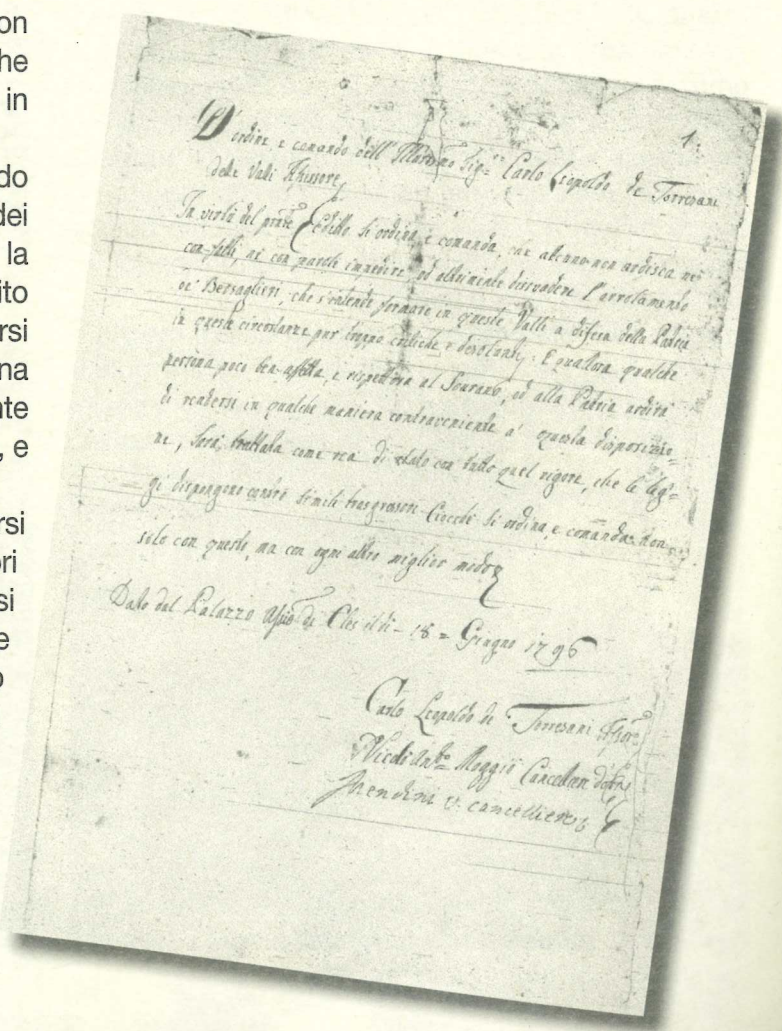 on
he
in
do
dei
la
ito
rsi
na
nte
, e
rsi
ori
si
e
o
1:
D'ordine, e comando dell' Sig.r Carlo Leopoldo de Torresani
delle Valli Assessore
In virtù del Editto si ordina, e comanda, che alcuno non ardisca né
con fatti, né con parole impedire, od altrimente dissuadere l'arrolamento
de' Bersaglieri, che s'intende formare in queste Valli a difesa della Patria
in queste circostanze pur troppo critiche e desolanti. E qualora qualche
persona poco ben affetta, e rispettosa al Sovrano, ed alla Patria ardirà
di rendersi in qualche maniera contraveniente a' questa disposizio=
ne, sarà trattata come rea di stato con tutto quel rigore, che le leg=
gi dispongono contro simili trasgressori. Ciocché si ordina, e comanda non
solo con questo, ma con ogni altro miglior modo
Dato dal Palazzo di Cles il dì - 18 = Giugno 1796
Carlo Leopoldo de Torresani
Moggio
v: cancelliere